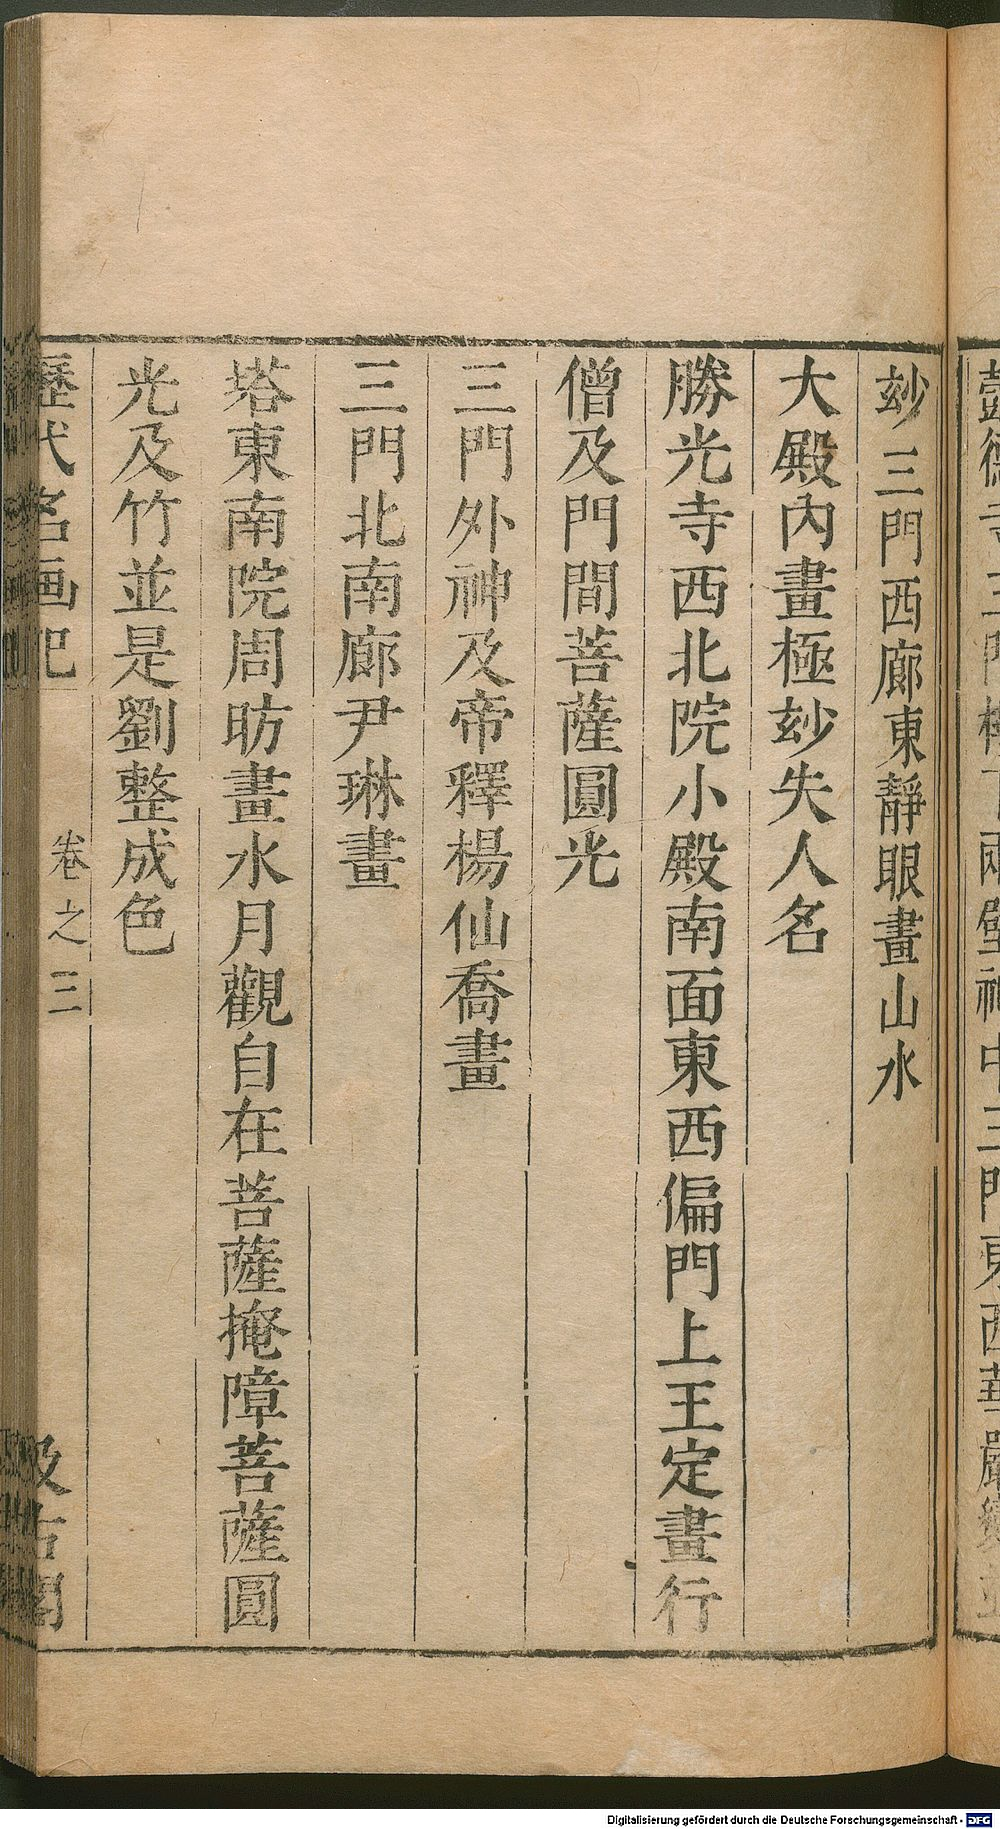 玅三門西廊東靜眼畫山水
大殿內畫極玅失人名
勝光寺西北院小殿南面東西偏門上王定畫行
僧及門間菩薩圓光
三門外神及帝釋楊仙喬畫
三門北南廊尹琳畫
塔東南院周昉畫水月觀自在菩薩掩障菩薩圓
光及竹並是劉整成色
歷代名画記
卷之三
汲古閣
Digitalisierung gefördert durch die Deutsche Forschungsgemeinschaft - DFG